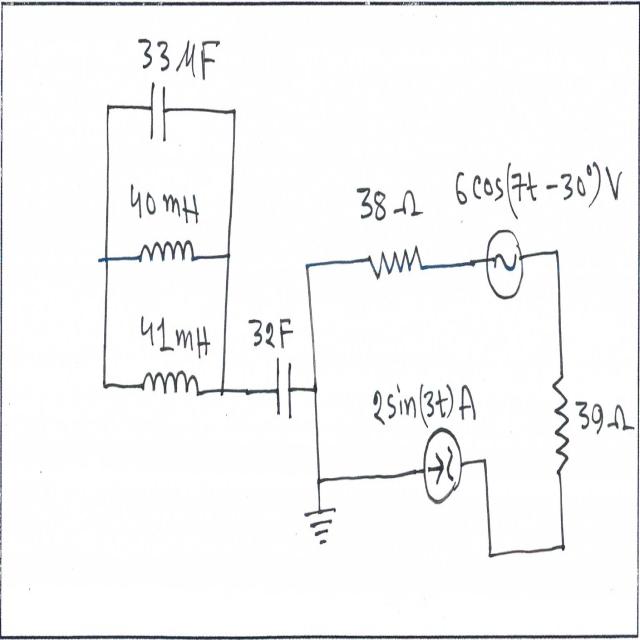 33 μF
40 mH
41 mH
32F
38 Ω
6cos(7t-30°)V
2sin(3t)A
39Ω